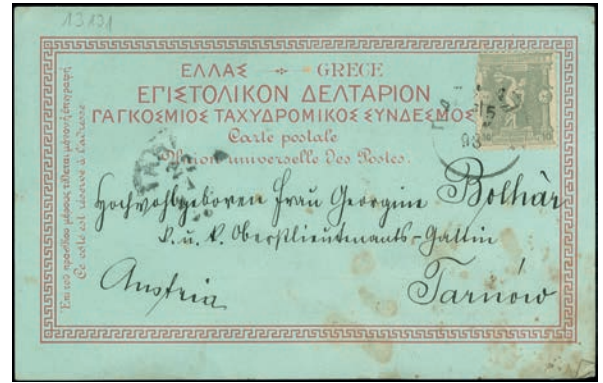 13131
ΕΛΛΑΣ GRECE
ΕΠΙΣΤΟΛΙΚΟΝ ΔΕΛΤΑΡΙΟΝ
ΠΑΓΚΟΣΜΙΟΣ ΤΑΧΥΔΡΟΜΙΚΟΣ ΣΥΝΔΕΣΜΟΣ
Carte postale
Union universelle des Postes.
Ἐπὶ τοῦ προσθίου μέρους τίθεται μόνον ἡ ἐπιγραφή
Ce côté est réservé à l'adresse
Hochwohlgeboren Frau Georgine Bolhár
K. u. K. Oberstlieutenants-Gattin
Austria Tarnów
98
10